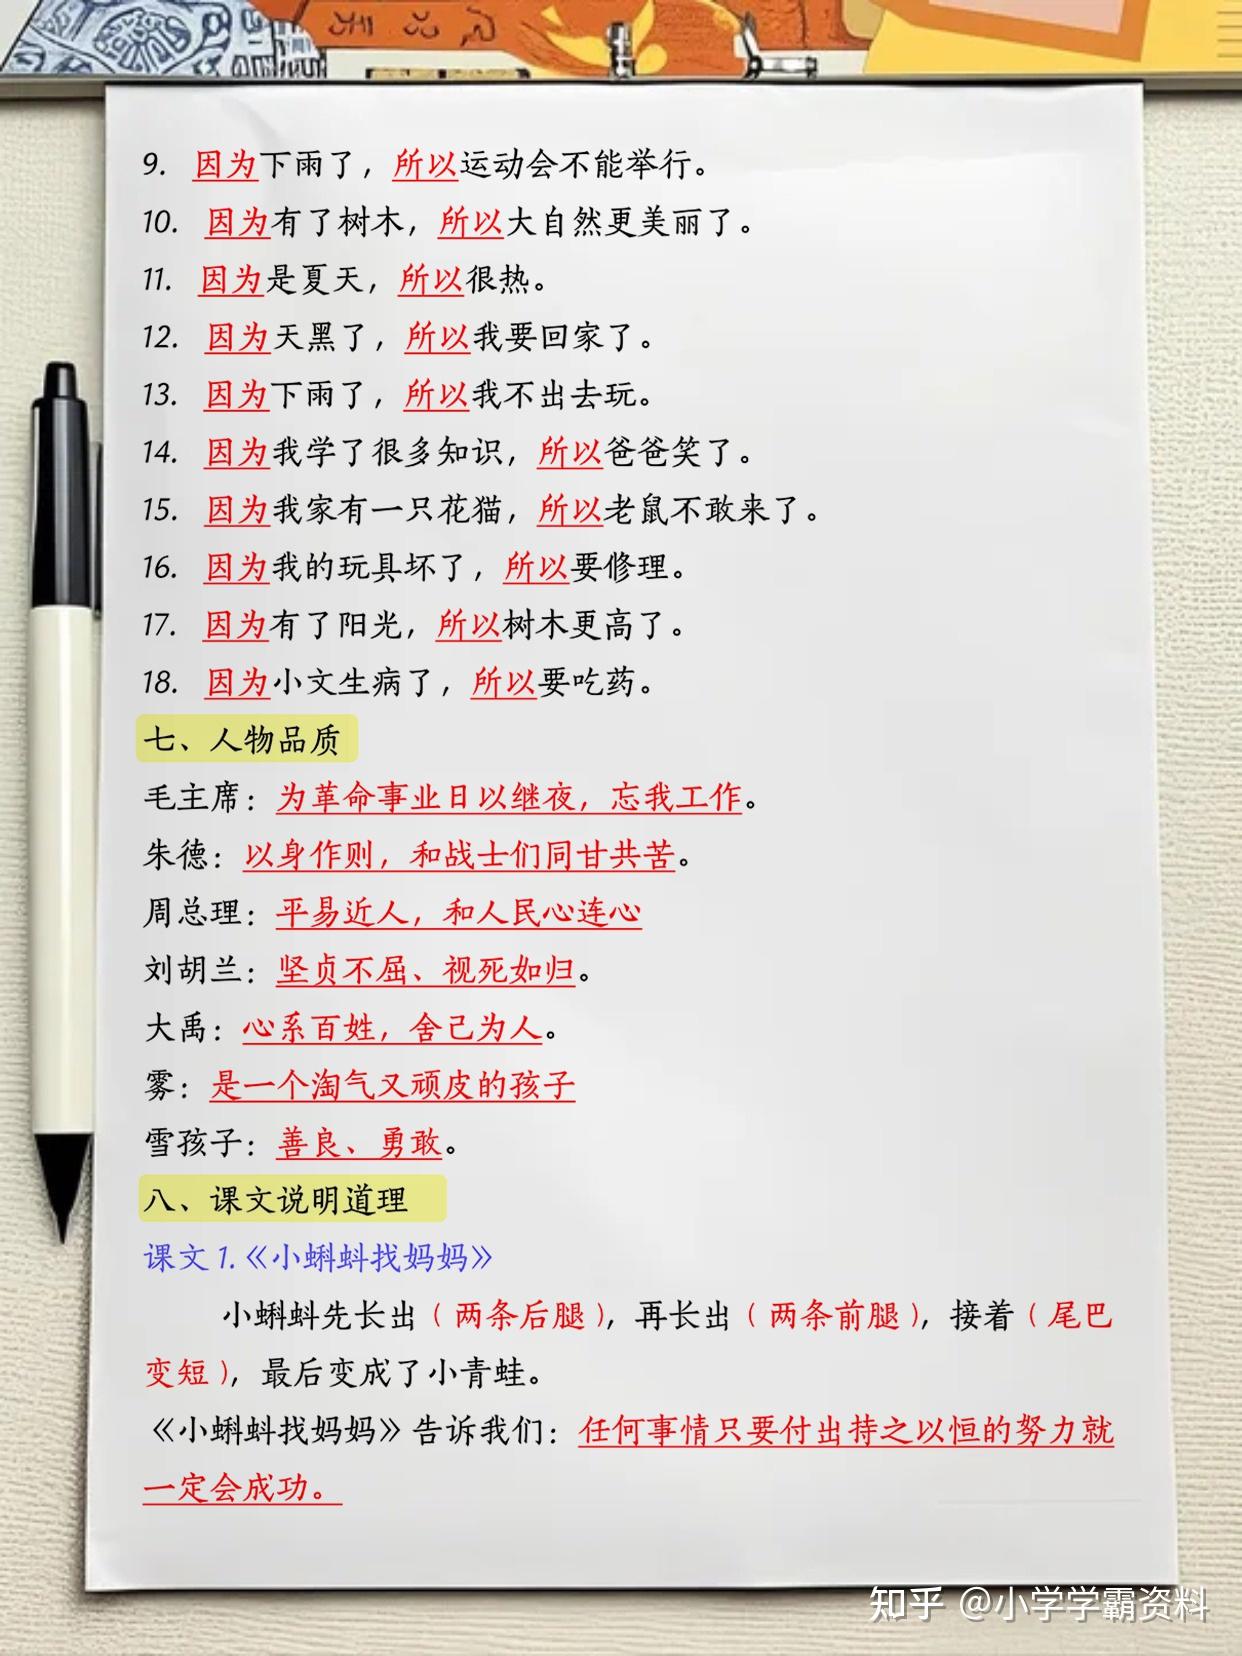 9. 因为下雨了，所以运动会不能举行。
10. 因为有了树木，所以大自然更美丽了。
11. 因为是夏天，所以很热。
12. 因为天黑了，所以我要回家了。
13. 因为下雨了，所以我不出去玩。
14. 因为我学了很多知识，所以爸爸笑了。
15. 因为我家有一只花猫，所以老鼠不敢来了。
16. 因为我的玩具坏了，所以要修理。
17. 因为有了阳光，所以树木更高了。
18. 因为小文生病了，所以要吃药。
七、人物品质
毛主席：为革命事业日以继夜，忘我工作。
朱德：以身作则，和战士们同甘共苦。
周总理：平易近人，和人民心连心
刘胡兰：坚贞不屈、视死如归。
大禹：心系百姓，舍己为人。
雾：是一个淘气又顽皮的孩子
雪孩子：善良、勇敢。
八、课文说明道理
课文1.《小蝌蚪找妈妈》
小蝌蚪先长出（两条后腿），再长出（两条前腿），接着（尾巴
变短），最后变成了小青蛙。
《小蝌蚪找妈妈》告诉我们：任何事情只要付出持之以恒的努力就
一定会成功。
知乎 @小学学霸资料